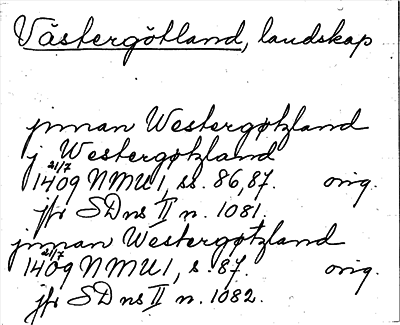 Västergötland, landskap
jnnan Westergøtzland
j Westergøtzland
21/7
1409 NMU 1, ss. 86, 87. orig.
jfr SD ns II n. 1081.
jnnan Westergøtzland
21/7
1409 NMU 1, s. 87. orig.
jfr SD ns II n. 1082.